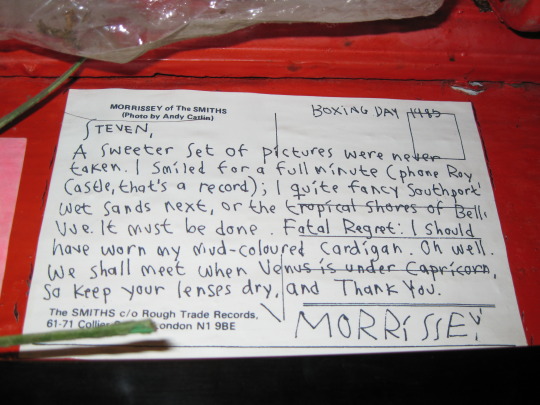 MORRISSEY of The SMITHS
(Photo by Andy Catlin)
BOXING DAY 1985
STEVEN,
A Sweeter Set of pictures were never
taken. I Smiled for a full minute (phone Roy
Castle, that's a record); I quite fancy Southport
wet Sands next, or the tropical Shores of Bell
Vue. It must be done. Fatal Regret: I should
have worn my mud-coloured Cardigan. Oh well.
We shall meet when Venus is under Capricorn,
So keep your lenses dry, and Thank You.
The SMITHS c/o Rough Trade Records,
61-71 Collier London N1 9BE
MORRISSEY